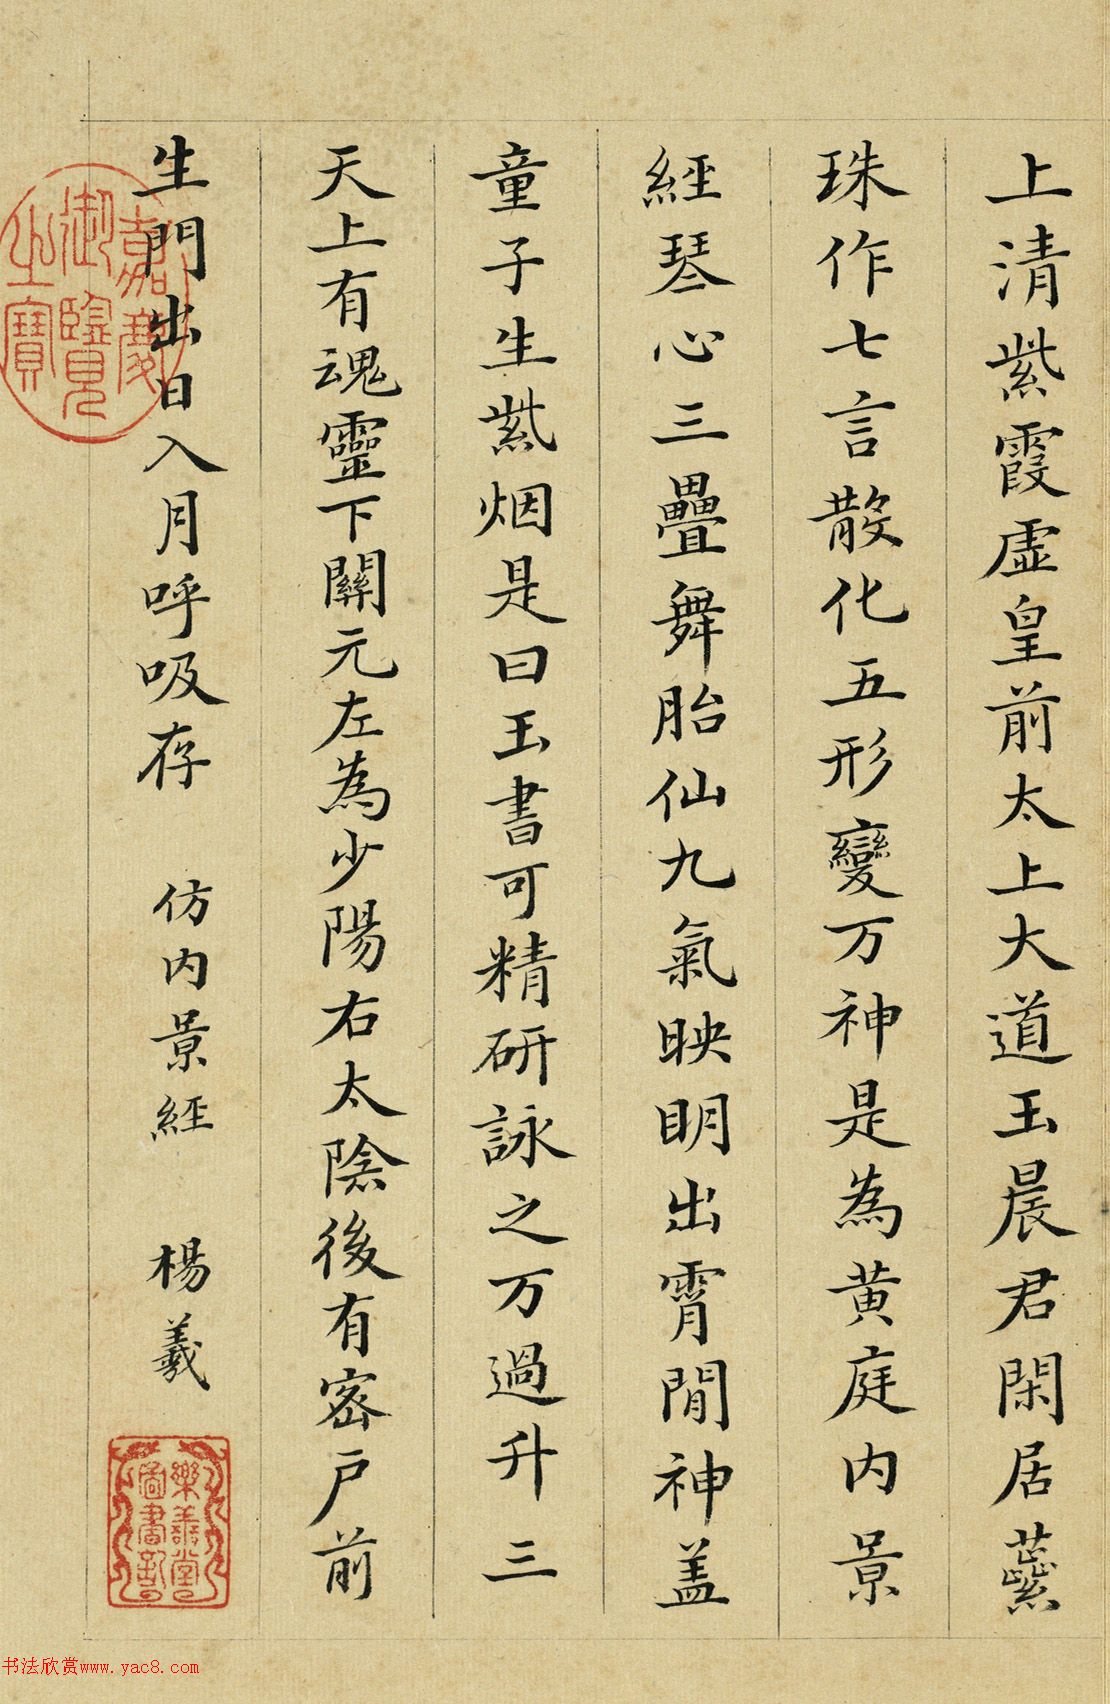 上清紫霞虛皇前太上大道玉晨君閑居蘂
珠作七言散化五形變万神是為黃庭內景
經琴心三疊舞胎仙九氣映明出霄間神盖
童子生紫烟是曰玉書可精研詠之万過升三
天上有魂靈下關元左為少陽右太陰後有密戶前
生門出日入月呼吸存 仿內景經 楊羲
嘉慶御覽之寶
樂善堂圖書記
书法欣赏www.yac8.com